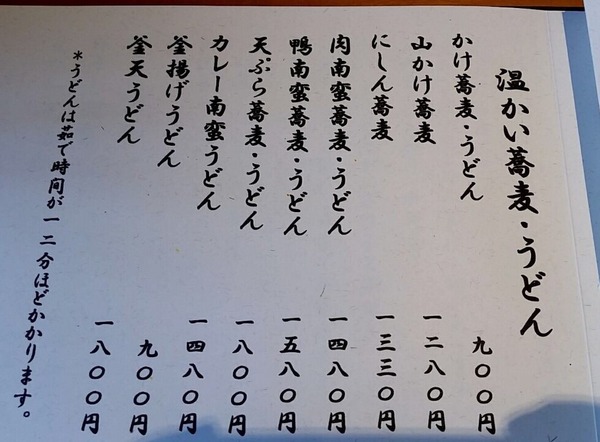 温かい蕎麦・うどん
かけ蕎麦・うどん 九〇〇円
山かけ蕎麦 一二八〇円
にしん蕎麦 一三三〇円
肉南蛮蕎麦・うどん 一四八〇円
鴨南蛮蕎麦・うどん 一五八〇円
天ぷら蕎麦・うどん 一八〇〇円
カレー南蛮うどん 一四八〇円
釜揚げうどん 九〇〇円
釜天うどん 一八〇〇円
*うどんは茹で時間が一二分ほどかかります。